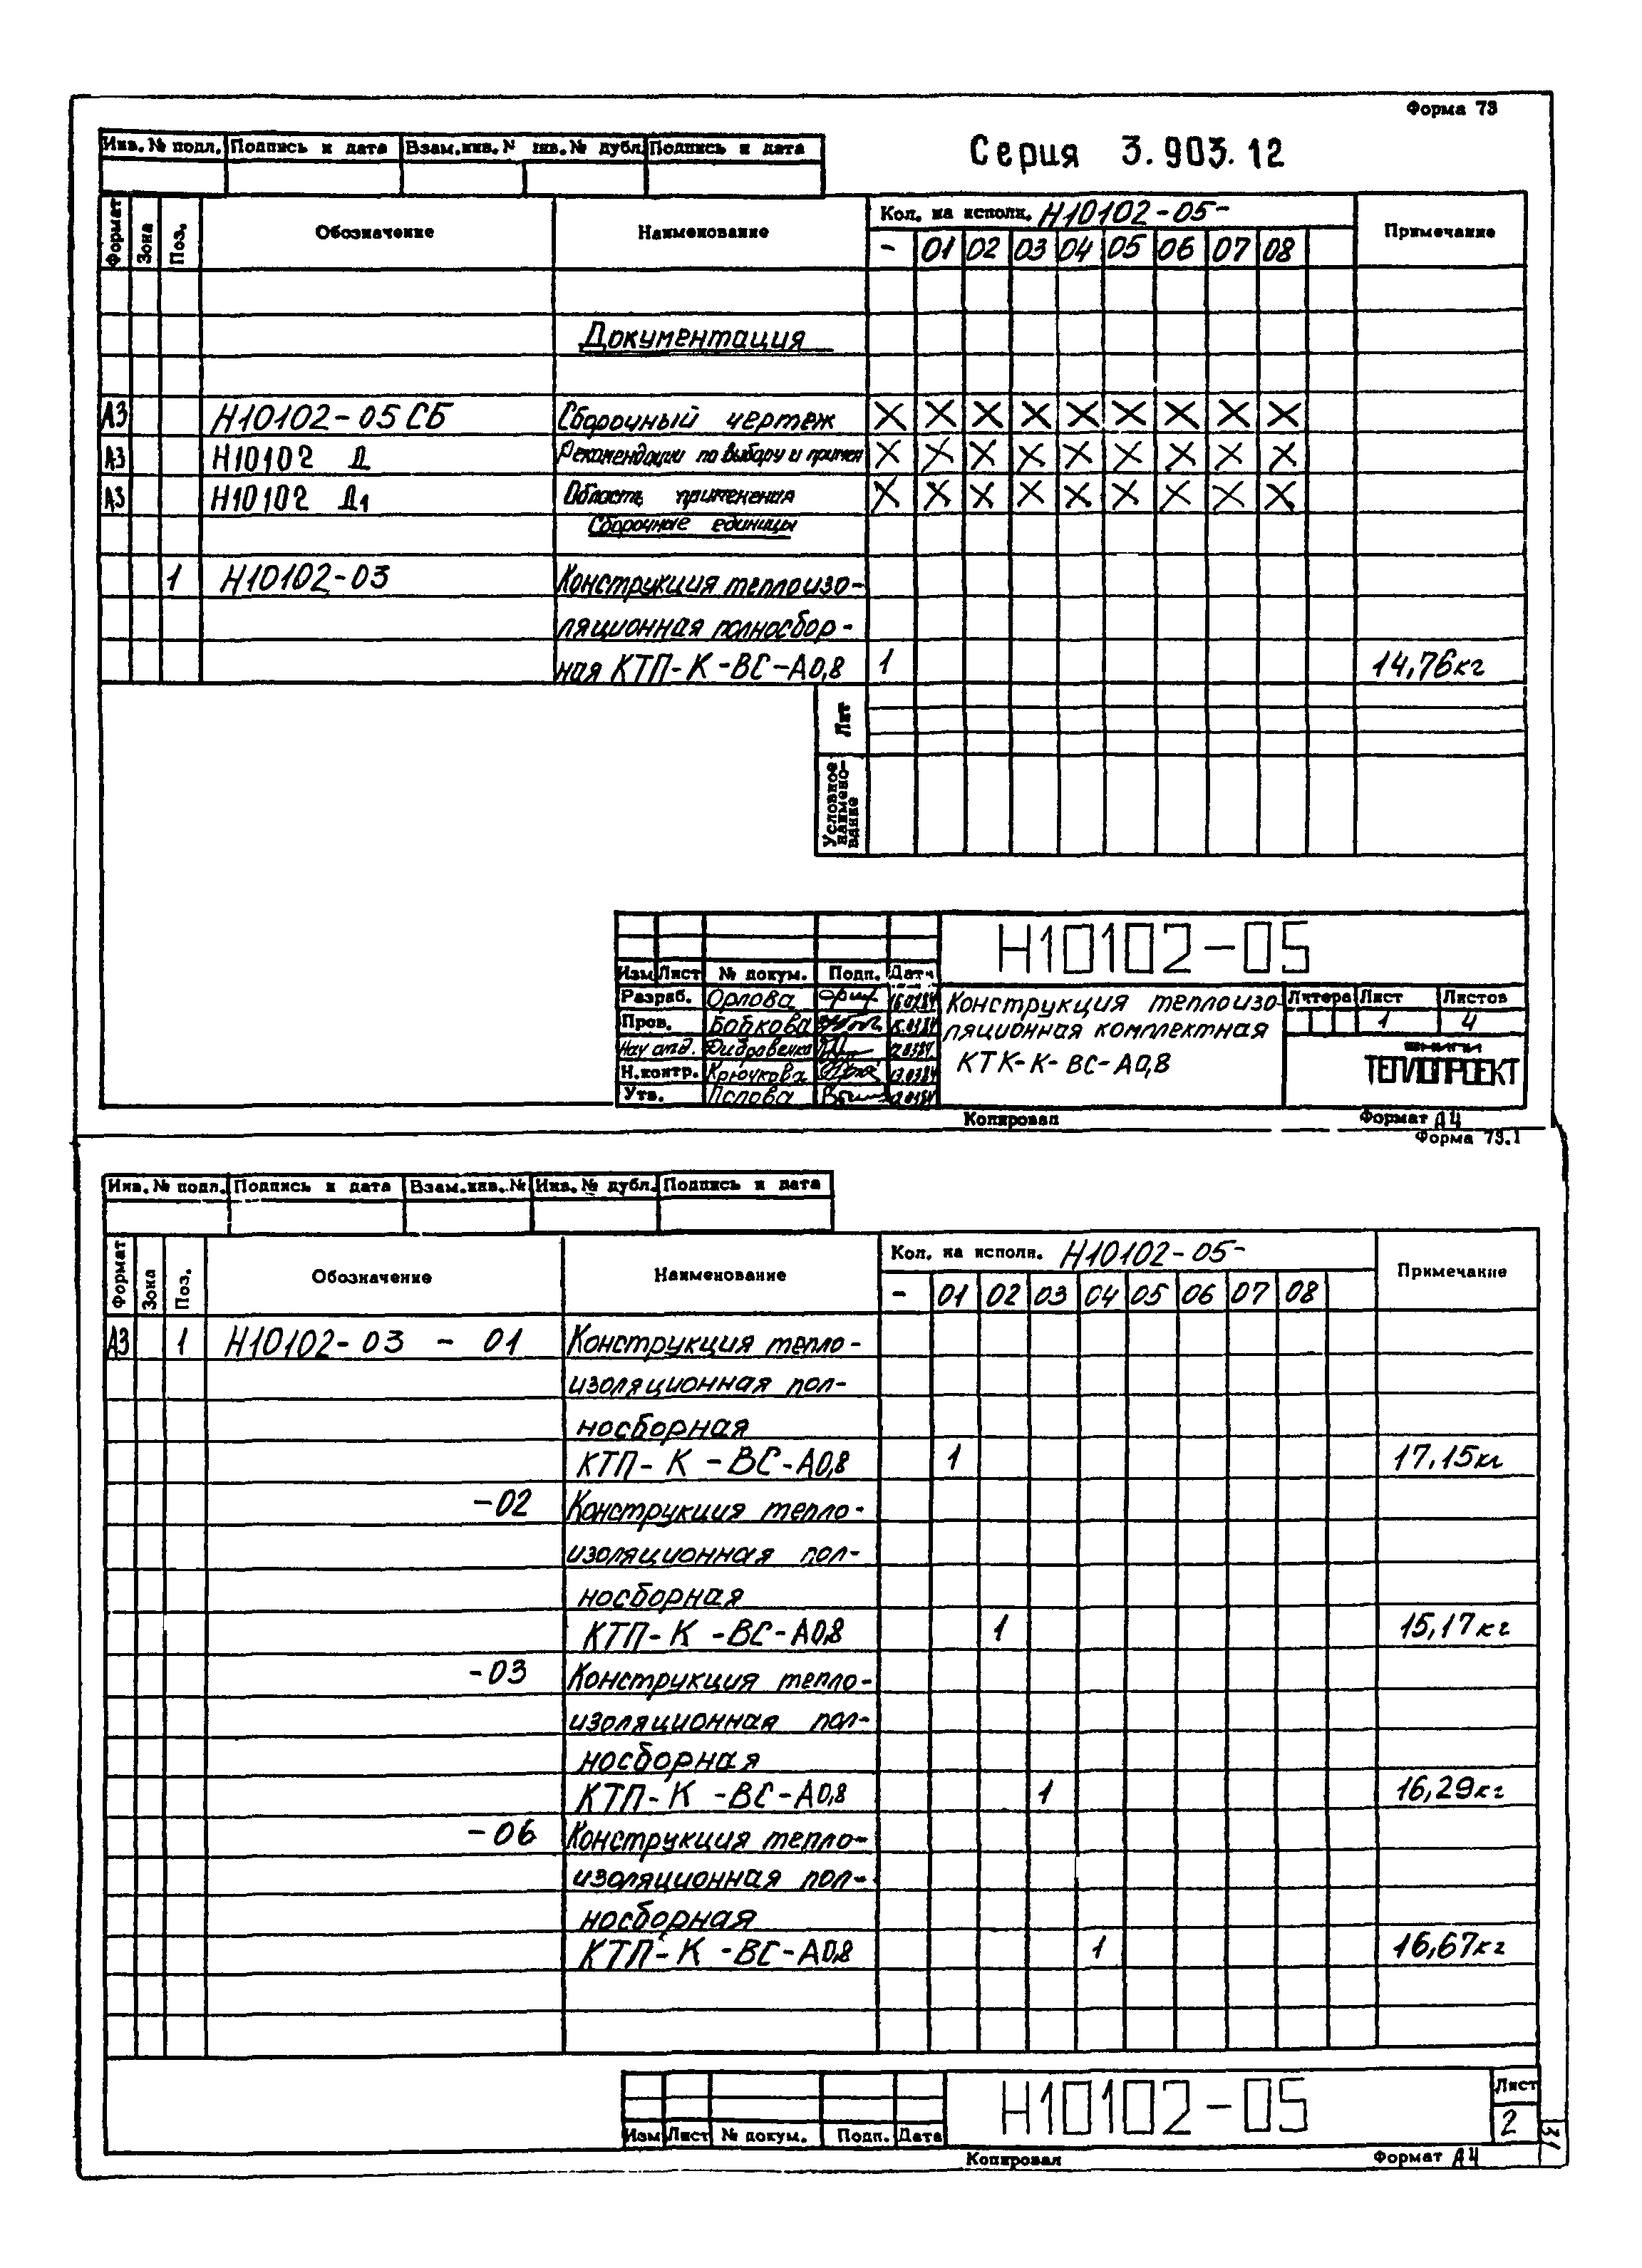 Форма 73
Серия 3.903.12
Инв. № подл. Подпись и дата Взам.инв. № инв. № дубл. Подпись и дата
Формат Зона Поз. Обозначение Наименование Кол. на исполн. Н10102-05- Примечание
- 01 02 03 04 05 06 07 08
Документация
А3 Н10102-05 СБ Сборочный чертеж X X X X X X X X X
А3 Н10102 Д Рекомендации по выбору и примен X X X X X X X X X
А3 Н10102 Д1 Область применения X X X X X X X X X
Сборочные единицы
1 Н10102-03 Конструкция теплоизо-
ляционная полносбор-
ная КТП-К-ВС-А0,8 1 14,76кг
Лит
Условное наимено-вание
Н10102-05
Изм Лист № докум. Подп. Дата
Разраб. Орлова
Пров. Бобкова
Нач отд.
Н.контр. Крючкова
Утв. Попова
Конструкция теплоизо-
ляционная комплектная
КТК-К-ВС-А0,8
Литера Лист Листов
1 4
ТЕПЛОПРОЕКТ
Копировал Формат А4
Форма 73.1
Инв. № подл. Подпись и дата Взам.инв. № Инв. № дубл. Подпись и дата
Формат Зона Поз. Обозначение Наименование Кол. на исполн. Н10102-05- Примечание
- 01 02 03 04 05 06 07 08
А3 1 Н10102-03 - 01 Конструкция тепло-
изоляционная пол-
носборная
КТП-К-ВС-А0,8 1 17,15кг
-02 Конструкция тепло-
изоляционная пол-
носборная
КТП-К-ВС-А0,8 1 15,17кг
-03 Конструкция тепло-
изоляционная пол-
носборная
КТП-К-ВС-А0,8 1 16,29кг
-06 Конструкция тепло-
изоляционная пол-
носборная
КТП-К-ВС-А0,8 1 16,67кг
Н10102-05
Лист
2
Изм Лист № докум. Подп. Дата
Копировал Формат А4
31